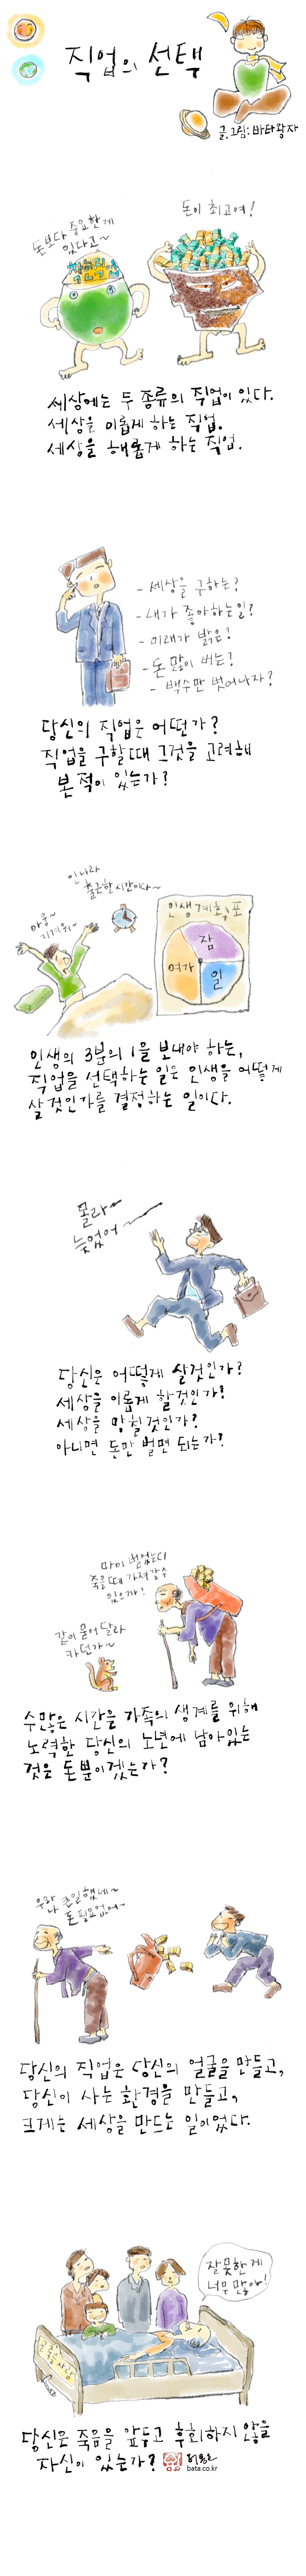 직업의 선택
글,그림:바타왕자
돈보다 중요한게
있다고~
돈이 최고여!
세상에는 두 종류의 직업이 있다.
세상을 이롭게 하는 직업.
세상을 해롭게 하는 직업.
- 세상을 구하는?
- 내가 좋아하는일?
- 미래가 밝은?
- 돈 많이 버는?
- 백수만 벗어나자?
당신의 직업은 어떤가?
직업을 구할때 그것을 고려해
본 적이 있는가?
인나라
출근할 시간이다~
아웅~
지겨워~
인생계획표
잠
여가
일
인생의 3분의 1을 보내야 하는,
직업을 선택하는 일은 인생을 어떻게
살것인가를 결정하는 일이다.
몰라~
늦었어~
당신은 어떻게 살것인가?
세상을 이롭게 할것인가?
세상을 망칠것인가?
아니면 돈만 벌면 되는가?
마이 벌었는디
죽을때 가져갈수
있으까!
같이 묻어달라
카던가~
수많은 시간을 가족의 생계를 위해
노력한 당신의 노년에 남아있는
것은 돈뿐이겠는가?
나 큰일했네~
돈 필요없어~
당신의 직업은 당신의 얼굴을 만들고,
당신이 사는 환경을 만들고,
크게는 세상을 만드는 일이었다.
잘못한게
너무 많아!
당신은 죽음을 앞두고 후회하지 않을
자신이 있는가?
bata.co.kr